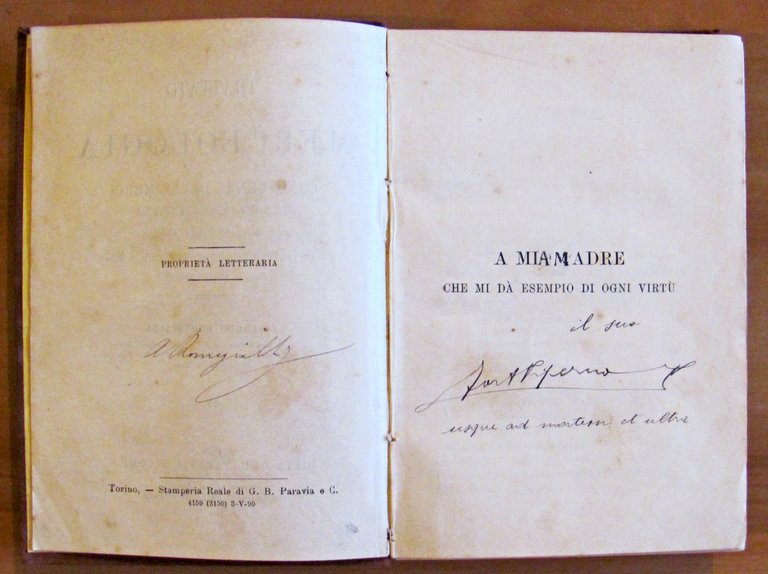 PROPRIETÀ LETTERARIA
Torino, — Stamperia Reale di G. B. Paravia e C.
4159 (5150) 3-V-90
A MIA MADRE
CHE MI DÀ ESEMPIO DI OGNI VIRTÙ
il suo
usque ad mortem et ultra